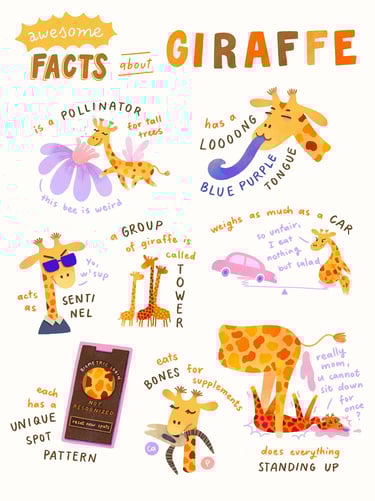 awesome
FACTS about GIRAFFE
is a POLLINATOR
for tall
trees
this bee is weird
has a
LOOOONG
BLUE PURPLE
TONGUE
acts
as SENTI
NEL
Yo,
'sup
a GROUP
of giraffe is
called
TOWER
weighs as much as a CAR
so unfair,
I eat
nothing
but salad
each
has a
UNIQUE
SPOT
PATTERN
BIOMETRIC LOGIN
NOT
RECOGNIZED
read new spots
eats
BONES for
supplements
Ca
P
really
mom,
u cannot
sit down
for
once?
does everything
STANDING UP